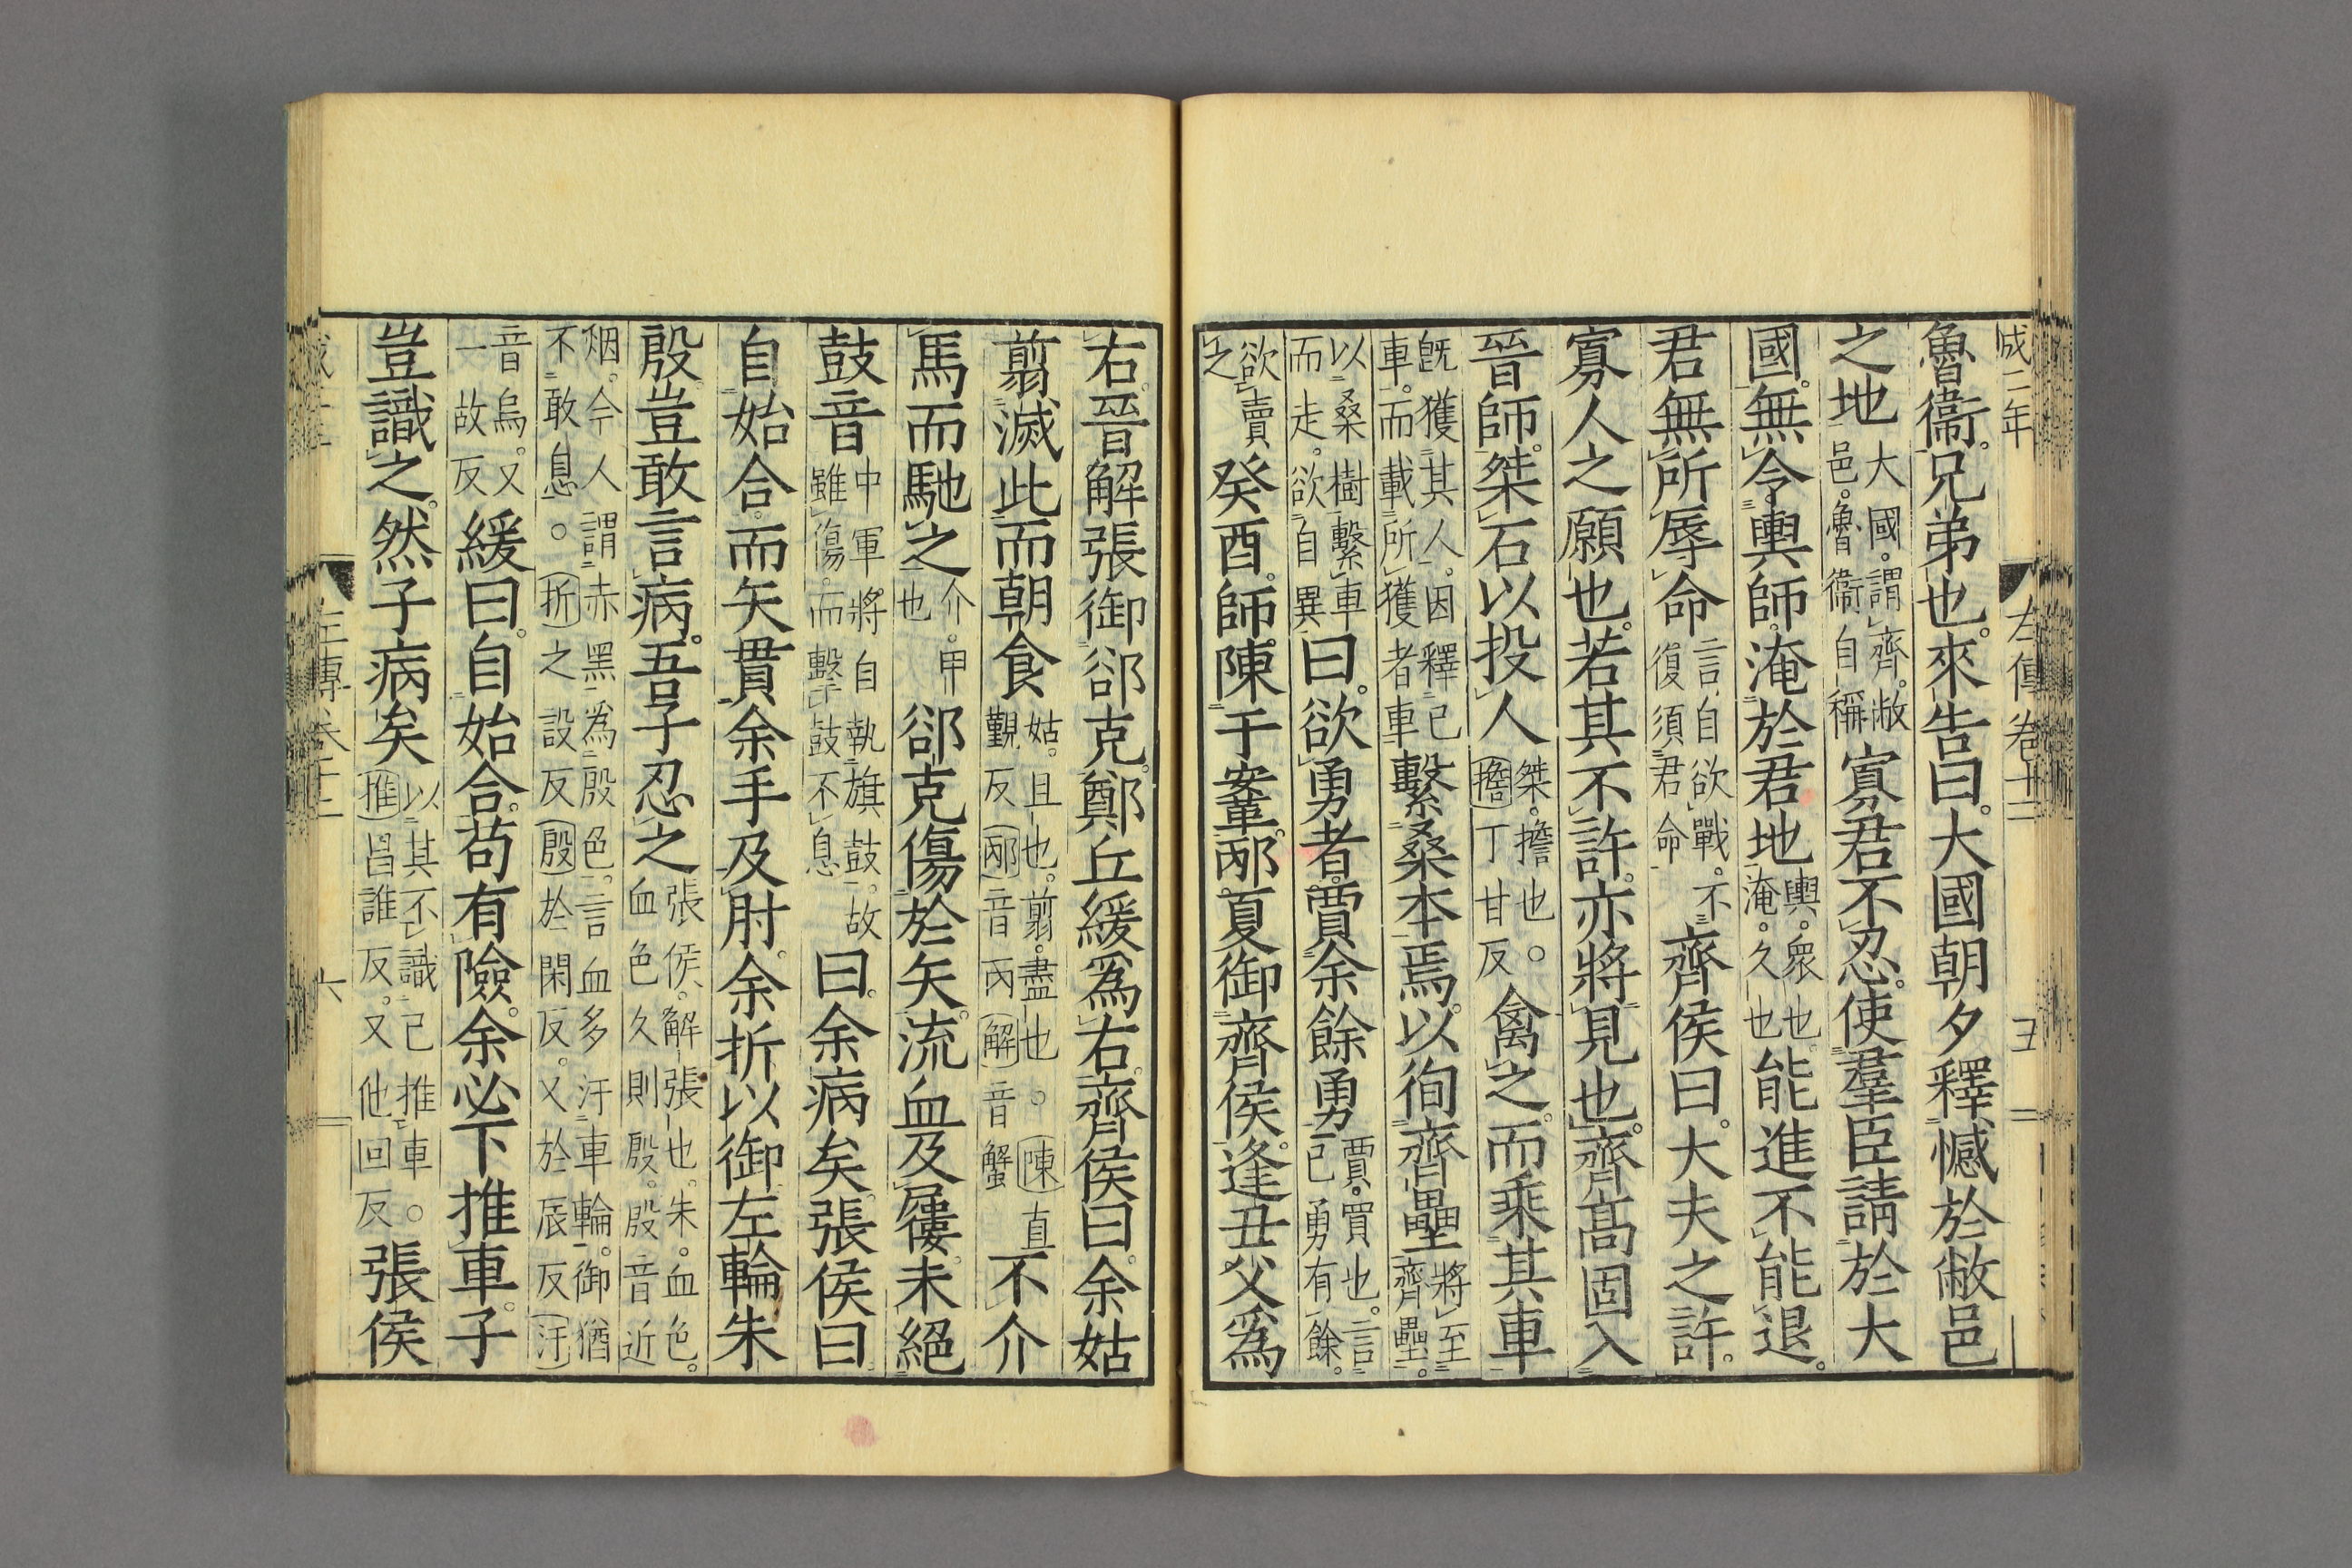 成二年 左傳卷十二 五
魯衞。兄弟也。來告曰。大國朝夕釋憾於敝邑
之地大國。謂齊。敝邑。魯衞自稱寡君不忍。使羣臣請於大
國。無令輿師。淹於君地輿。衆也。淹。久也能進不能退。
君無所辱命言自欲戰。不復須君命齊侯曰。大夫之許。
寡人之願也。若其不許。亦將見也。齊高固入
晉師。桀石以投人桀。擔也。○擔丁甘反禽之。而乘其車
旣獲其人。因釋己車。而載所獲者車繫桑本焉。以徇齊壘將至齊壘。
以桑樹繫車而走。欲自異曰。欲勇者。賈余餘勇賈。買也。言己勇有餘。
欲賣之癸酉。師陳于鞌。邴夏御齊侯。逢丑父爲
右。晉解張御郤克。鄭丘緩爲右。齊侯曰。余姑
翦滅此而朝食姑。且也。翦。盡也。○陳直覲反邴音丙解音蟹不介
馬而馳之介。甲也郤克傷於矢。流血及屨。未絕
鼓音中軍將自執旗鼓。故雖傷。而擊鼓不息曰。余病矣。張侯曰
自始合。而矢貫余手及肘。余折以御。左輪朱
殷。豈敢言病。吾子忍之張侯。解張也。朱。血色。血色久則殷。殷音近
烟。今人謂赤黑爲殷色。言血多汙車輪。御猶不敢息。○折之設反殷於閑反。又於辰反汙
音烏。又一故反緩曰。自始合。苟有險。余必下推車。子
豈識之。然子病矣以其不識己推車。○推昌誰反。又他回反張侯
左傳卷十二 六